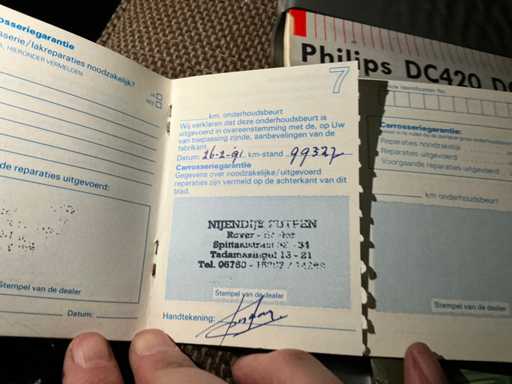 rosseriegarantie
sserie/lakreparaties noodzakelijk?
, HIERONDER VERMELDEN
JA
NEE
de reparaties uitgevoerd:
Stempel van de dealer
Datum:
7
km. onderhoudsbeurt
Wij verklaren dat deze onderhoudsbeurt is
uitgevoerd in overeenstemming met de, op Uw
van toepassing zonde, aanbevelingen van de
fabrikant.
Datum: 26-2-91. km-stand: 99327
Carrosseriegarantie
Gegevens over noodzakelijke/uitgevoerd
reparaties zijn vermeld op de achterkant van dit
blad.
NIJENDIJK PUTTEN
Rover - dealer
Spittaalstraat - 34
Tadamasingel 13 - 21
Tel. 05750 -
Stempel van de dealer
Handtekening:
Philips DC420
Carrosseriegarantie:
Reparaties noodzakelijk
Reparaties uitgevoerd
Voorgaande reparaties uitgevoerd
km onderhoudsbeurt
Stempel van de dealer